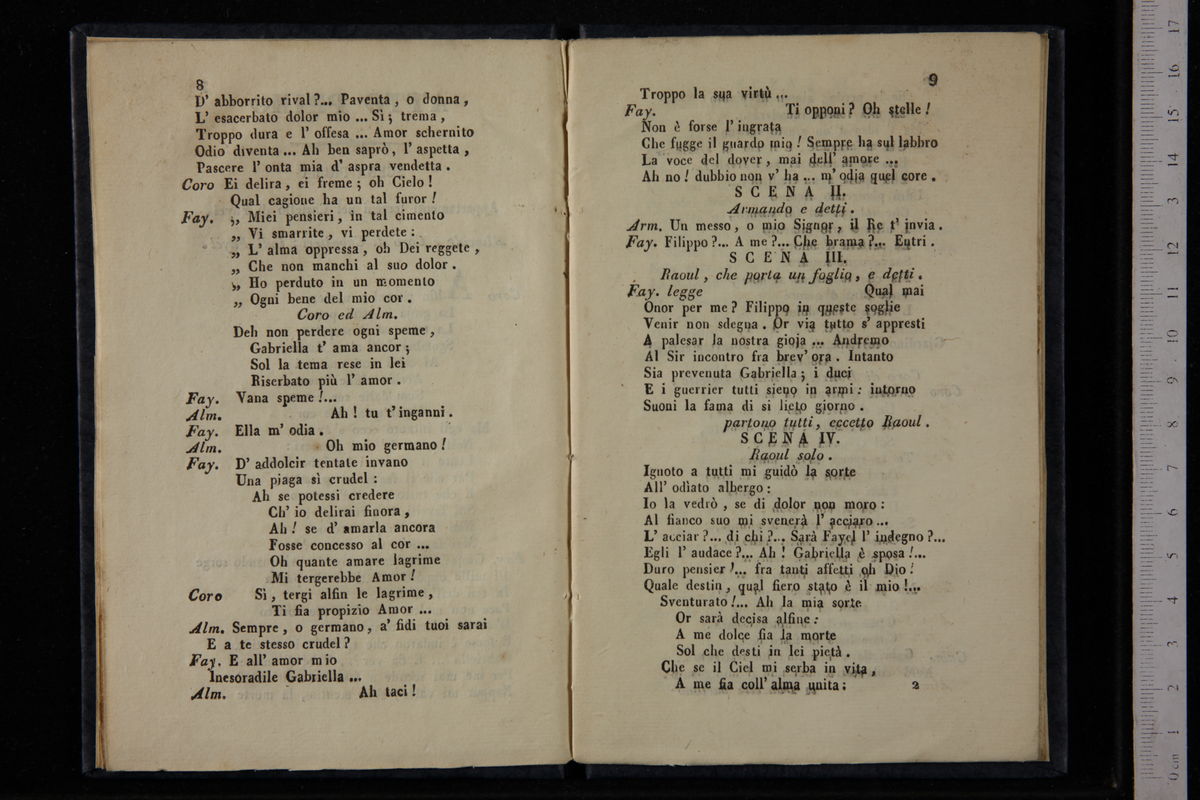 8
D' abborrito rival ?... Paventa , o donna ,
L' esacerbato dolor mio ... Sì ; trema ,
Troppo dura e l' offesa ... Amor schernito
Odio diventa ... Ah ben saprò, l' aspetta ,
Pascere l' onta mia d' aspra vendetta .
Coro Ei delira , ei freme ; oh Cielo !
Qual cagione ha un tal furor !
Fay. ,, Miei pensieri , in tal cimento
,, Vi smarrite , vi perdete :
,, L' alma oppressa , oh Dei reggete ,
,, Che non manchi al suo dolor .
,, Ho perduto in un momento
,, Ogni bene del mio cor .
Coro ed Alm.
Deh non perdere ogni speme ,
Gabriella t' ama ancor ;
Sol la tema rese in lei
Riserbato più l' amor .
Fay. Vana speme !...
Alm. Ah ! tu t' inganni .
Fay. Ella m' odia .
Alm. Oh mio germano !
Fay. D' addolcir tentate invano
Una piaga sì crudel :
Ah se potessi credere
Ch' io delirai finora ,
Ah ! se d' amarla ancora
Fosse concesso al cor ...
Oh quante amare lagrime
Mi tergerebbe Amor !
Coro Sì , tergi alfin le lagrime ,
Ti fia propizio Amor ...
Alm. Sempre , o germano , a' fidi tuoi sarai
E a te stesso crudel ?
Fay. E all' amor mio
Inesoradile Gabriella ...
Alm. Ah taci !
9
Troppo la sua virtù ...
Fay. Ti opponi ? Oh stelle !
Non è forse l' ingrata
Che fugge il guardo mio ! Sempre ha sul labbro
La voce del dover , mai dell' amore ...
Ah no ! dubbio non v' ha ... m' odia quel core .
SCENA II.
Armando e detti .
Arm. Un messo , o mio Signor , il Re t' invia .
Fay. Filippo ?... A me ?... Che brama ?... Entri .
SCENA III.
Raoul , che porta un foglio , e detti .
Fay. legge Qual mai
Onor per me ? Filippo in queste soglie
Venir non sdegna . Or via tutto s' appresti
A palesar la nostra gioja ... Andremo
Al Sir incontro fra brev' ora . Intanto
Sia prevenuta Gabriella ; i duci
E i guerrier tutti sieno in armi : intorno
Suoni la fama di sì lieto giorno .
partono tutti , eccetto Raoul .
SCENA IV.
Raoul solo .
Ignoto a tutti mi guidò la sorte
All' odiato albergo :
Io la vedrò , se di dolor non moro :
Al fianco suo mi svenerà l' acciaro ...
L' acciar ?... di chi ?... Sarà Fayel l' indegno ?...
Egli l' audace ?... Ah ! Gabriella è sposa !...
Duro pensier !... fra tanti affetti oh Dio !
Quale destin , qual fiero stato è il mio !...
Sventurato !... Ah la mia sorte
Or sarà decisa alfine :
A me dolce fia la morte
Sol che desti in lei pietà .
Che se il Ciel mi serba in vita ,
A me fia coll' alma unita ;
2
0 cm 1 2 3 4 5 6 7 8 9 10 11 12 13 14 15 16 17